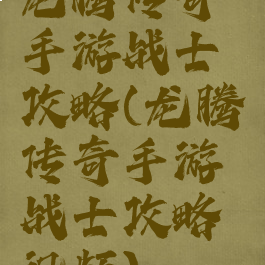 龙腾传奇
手游战士
攻略(龙腾
传奇手游
战士攻略
视频)